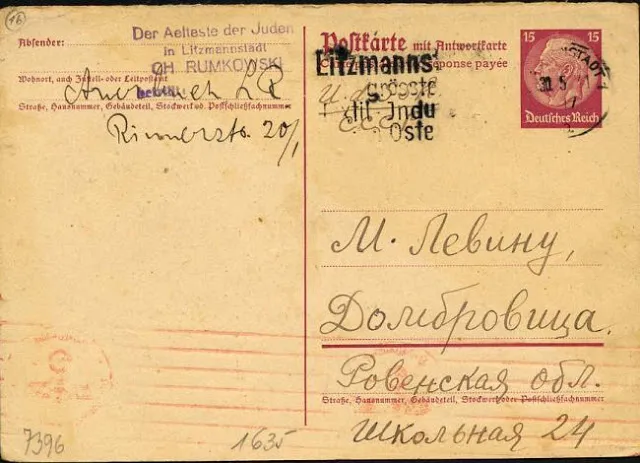 16
Absender:
Der Aelteste der Juden
in Litzmannstadt
CH. RUMKOWSKI
Wohnort, auch Zustell- oder Leitpostamt
Auerbach L R
Straße, Hausnummer, Gebäudeteil, Stockwerk od. Postschließfachnummer
20/1
Postkarte mit Antwortkarte
réponse payée
15 15
Deutsches Reich
Litzmanns
grösste
til-Indu
Oste
30.5
М. Левину,
Домбровица.
Ровенская обл.
Straße, Hausnummer, Gebäudeteil, Stockwerk oder Postschließfachnummer
Школьная 24
7396
1635